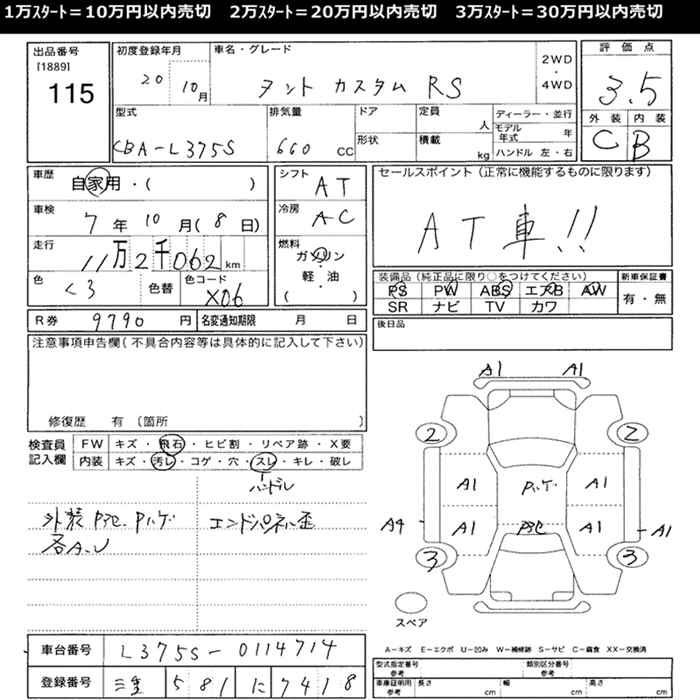 1万スタート＝10万円以内売切　2万スタート＝20万円以内売切　3万スタート＝30万円以内売切
出品番号
[1889]
115
初度登録年月
20 10月
車名・グレード
タント カスタム RS
2WD
・
4WD
評価点
3.5
型式
CBA-L375S
排気量
660 CC
ドア
形状
定員
人
積載
kg
ディーラー・並行
モデル年式 年
ハンドル 左・右
外装 内装
C B
車歴
自家用・( )
車検
7年10月(8日)
走行
11万2千062km
色
クロ
色替
色コード
X06
シフト
AT
冷房
AC
燃料
ガソリン
・
軽・油
( )
セールスポイント（正常に機能するものに限ります）
AT車!!
装備品（純正品に限り○をつけてください）
PS PW ABS エアB AW
SR ナビ TV カワ
新車保証書
有・無
R券 9790円 名変通知期限 月 日
後日品
注意事項申告欄(不具合内容等は具体的に記入して下さい)
修復歴 有〔箇所
検査員
記入欄
FW キズ・飛石・ヒビ割・リペア跡・X要
内装 キズ・汚レ・コゲ・穴・スレ・キレ・破レ
ハンドル
外装 P化 Pハゲ エンドパネル歪
各A.U
A1 A1
2 2
A1 Pハゲ A1
A4 A1 P化 A1 A1
3 3
スペア
A－キズ E－エクボ U－凹み W－補修跡 S－サビ C－腐食 XX－交換済
車台番号 L375S-0114714
登録番号 三重 581 に 7418
型式指定番号
参考
類別区分番号
参考
車庫証明用
参考
長さ cm 幅 cm 高さ cm